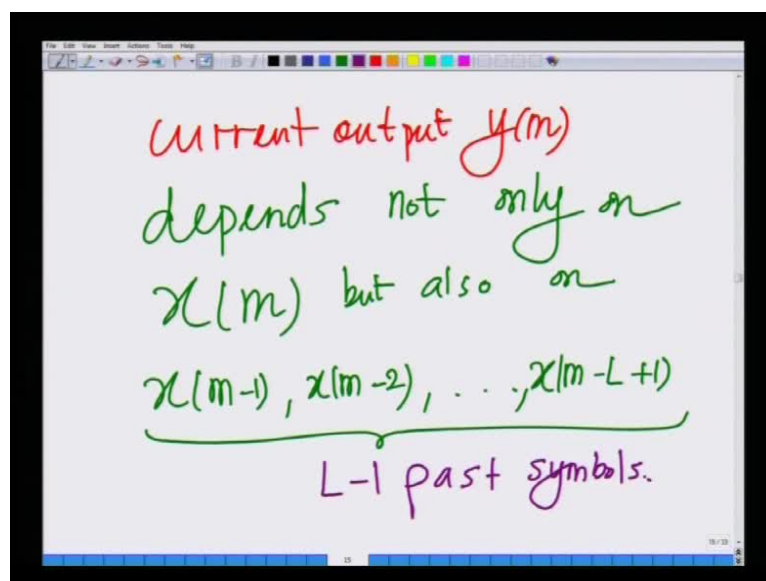 File Edit View Insert Actions Tools Help
current output y(m)
depends not only on
x(m) but also on
x(m-1), x(m-2), . . ., x(m-L+1)
L-1 past symbols.
15